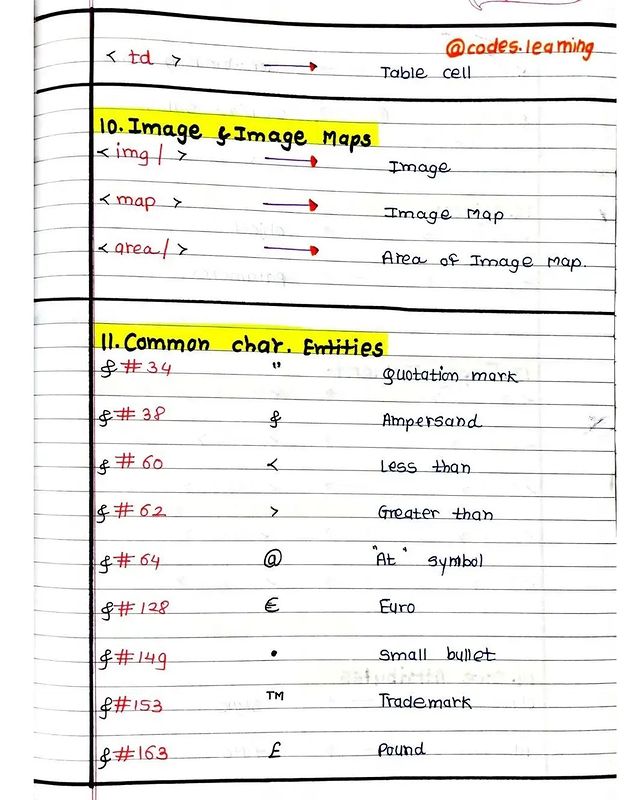 @codes.learning
< td > → Table cell
10. Image & Image Maps
< img / > → Image
< map > → Image Map
< area / > → Area of Image Map.
11. Common char. Entities
& # 34 " Quotation mark
& # 38 & Ampersand
& # 60 < Less than
& # 62 > Greater than
& # 64 @ "At" symbol
& # 128 € Euro
& # 149 • small bullet
& # 153 ™ Trademark
& # 163 £ Pound